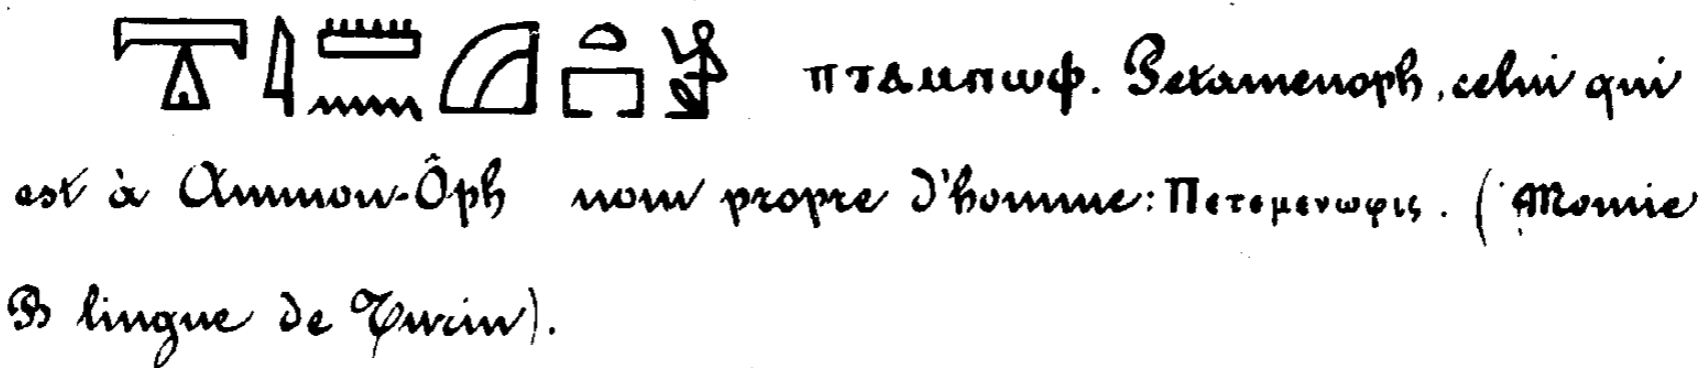 ⲡⲧⲁⲙⲛⲱⲫ. Petamenoph, celui qui
est à Ammon-Ôph nom propre d'homme: Πετεμενωφις. (Momie
Bilingue de Turin).